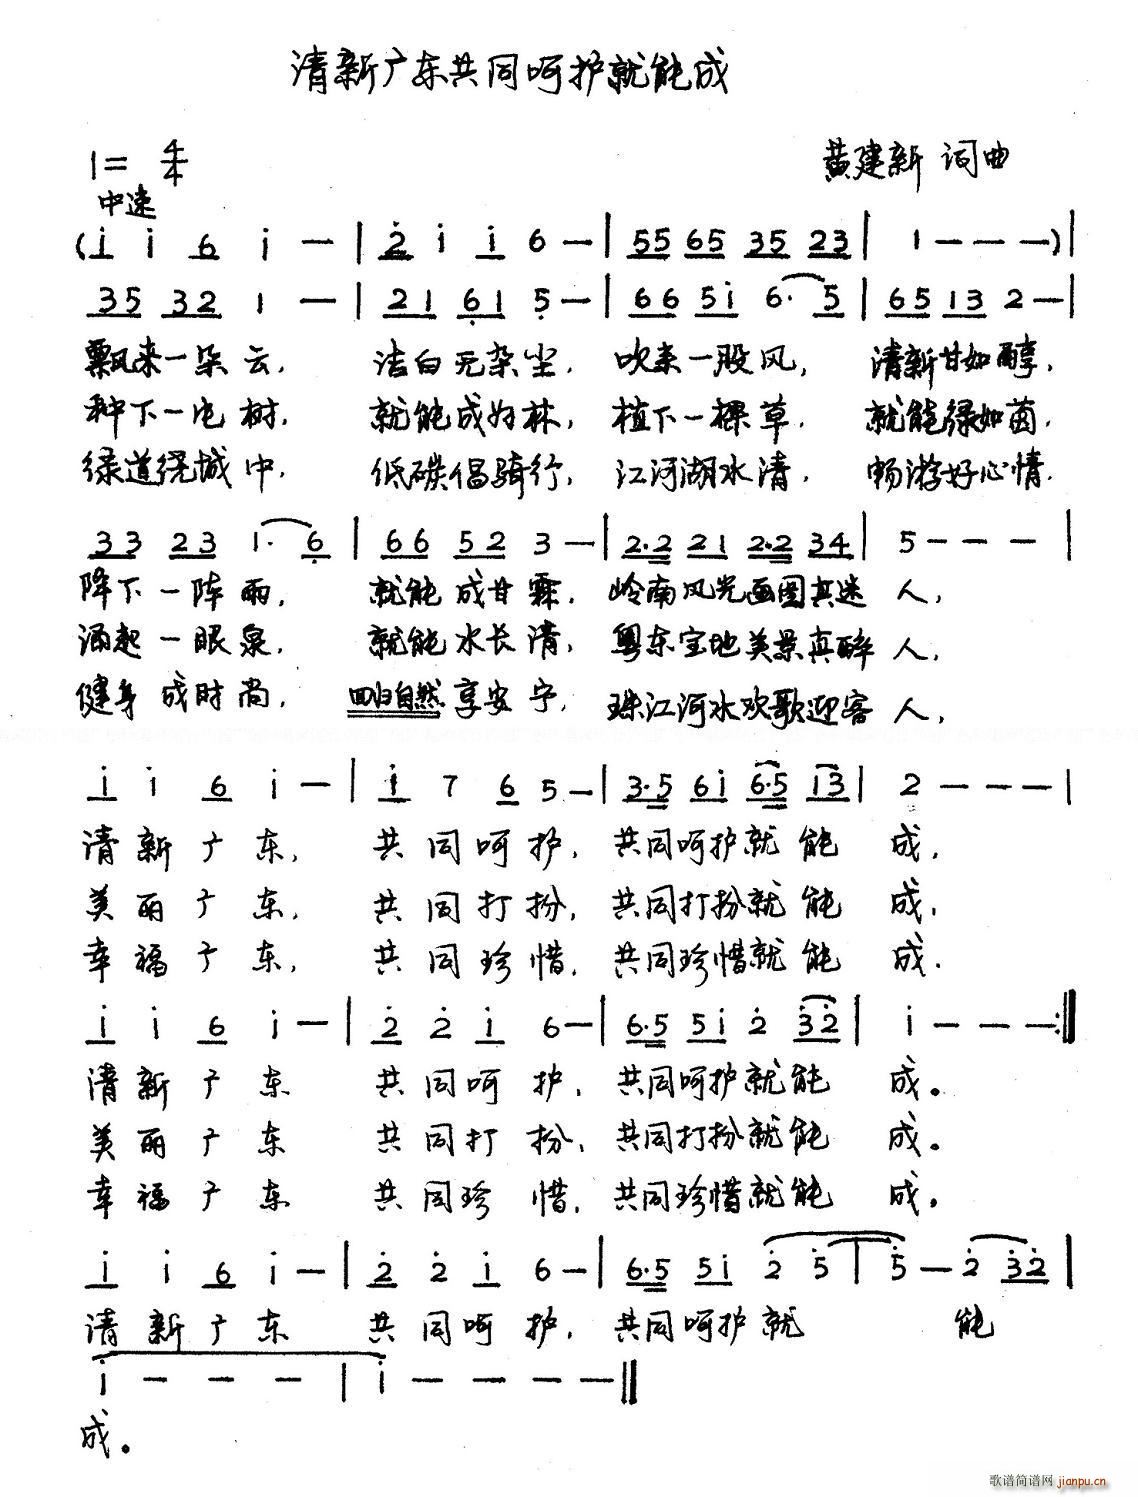 清新广东共同呵护就能成
1= 4/4
黄建新 词曲
中速
(i i 6 i — | 2̇ i i 6 — | 55 65 35 23 | 1 — — — )|
35 32 1 — | 21 6̣1 5̣ — | 66 5i 6· 5 | 65 13 2 — |
飘来一朵云, 洁白无杂尘. 吹来一股风, 清新甘如醇.
种下一片树, 就能成好林, 植下一棵草, 就能绿如茵.
绿道绕城中, 低碳倡骑行, 江河湖水清, 畅游好心情.
33 23 1· 6̣ | 66 52 3 — | 2·2 21 2·2 34 | 5 — — — |
降下一阵雨, 就能成甘霖, 岭南风光画图真迷人,
涌起一眼泉, 就能水长清, 粤东宝地美景真醉人,
健身成时尚, 回归自然享安宁, 珠江河水欢歌迎客人,
i i 6 i — | i 7 6 5 — | 3·5 6i 6·5 13 | 2 — — — |
清新广东, 共同呵护, 共同呵护就能成,
美丽广东, 共同打扮, 共同打扮就能成,
幸福广东, 共同珍惜, 共同珍惜就能成.
i i 6 i — | 2̇ 2̇ i 6 — | 6·5 5i 2̇ 3̇2̇ | i — — — :‖
清新广东 共同呵护, 共同呵护就能成。
美丽广东 共同打扮, 共同打扮就能成。
幸福广东 共同珍惜, 共同珍惜就能成。
i i 6 i — | 2̇ 2̇ i 6 — | 6·5 5i 2̇ 5̇ | 5̇ — 2̇ 3̇2̇ |
清新广东 共同呵护, 共同呵护就能
i — — — | i — — — ‖
成。
歌谱简谱网 jianpu.cn